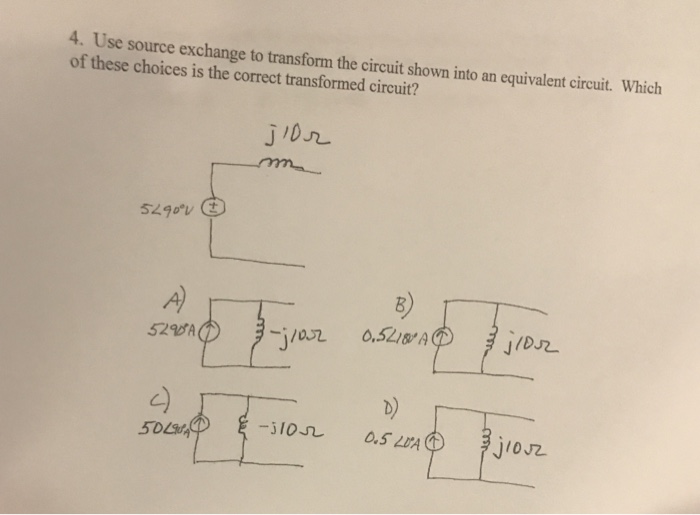 4. Use source exchange to transform the circuit shown into an equivalent circuit. Which
of these choices is the correct transformed circuit?
j10Ω
5∠90°V
±
A)
5∠90°A
-j10Ω
B)
0.5∠180°A
j10Ω
C)
50∠90°A
-j10Ω
D)
0.5∠0°A
j10Ω